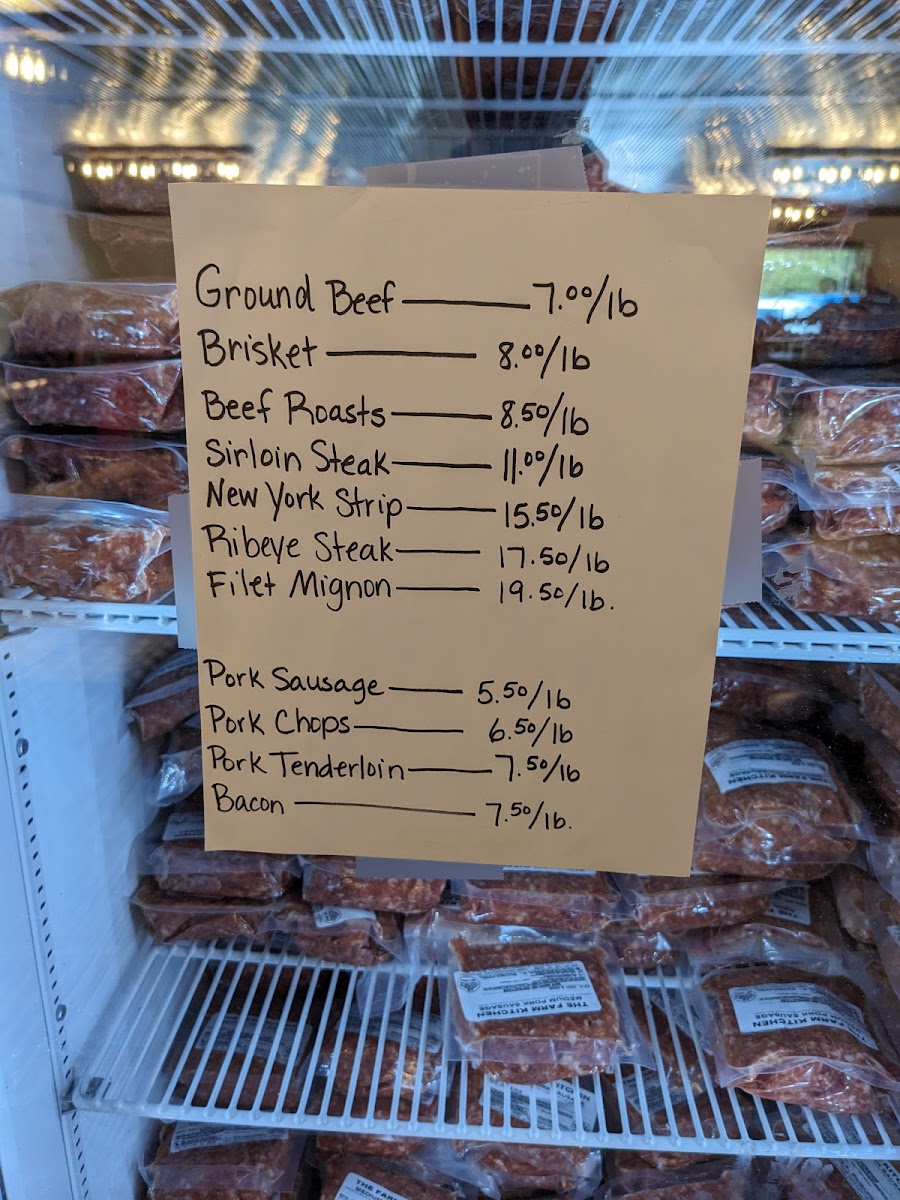 Ground Beef — 7.00/lb
Brisket — 8.00/lb
Beef Roasts — 8.50/lb
Sirloin Steak — 11.00/lb
New York Strip — 15.50/lb
Ribeye Steak — 17.50/lb
Filet Mignon — 19.50/lb.
Pork Sausage — 5.50/lb
Pork Chops — 6.50/lb
Pork Tenderloin — 7.50/lb
Bacon — 7.50/lb.
THE FARM KITCHEN
MEDIUM PORK SAUSAGE
THE FARM KITCHEN
MEDIUM PORK SAUSAGE